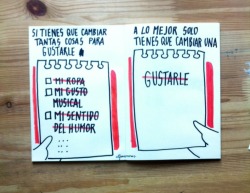 SI TIENES QUE CAMBIAR
TANTAS COSAS PARA
GUSTARLE
MI ROPA
MI GUSTO
MUSICAL
MI SENTIDO
DEL HUMOR
A LO MEJOR SOLO
TIENES QUE CAMBIAR UNA
GUSTARLE